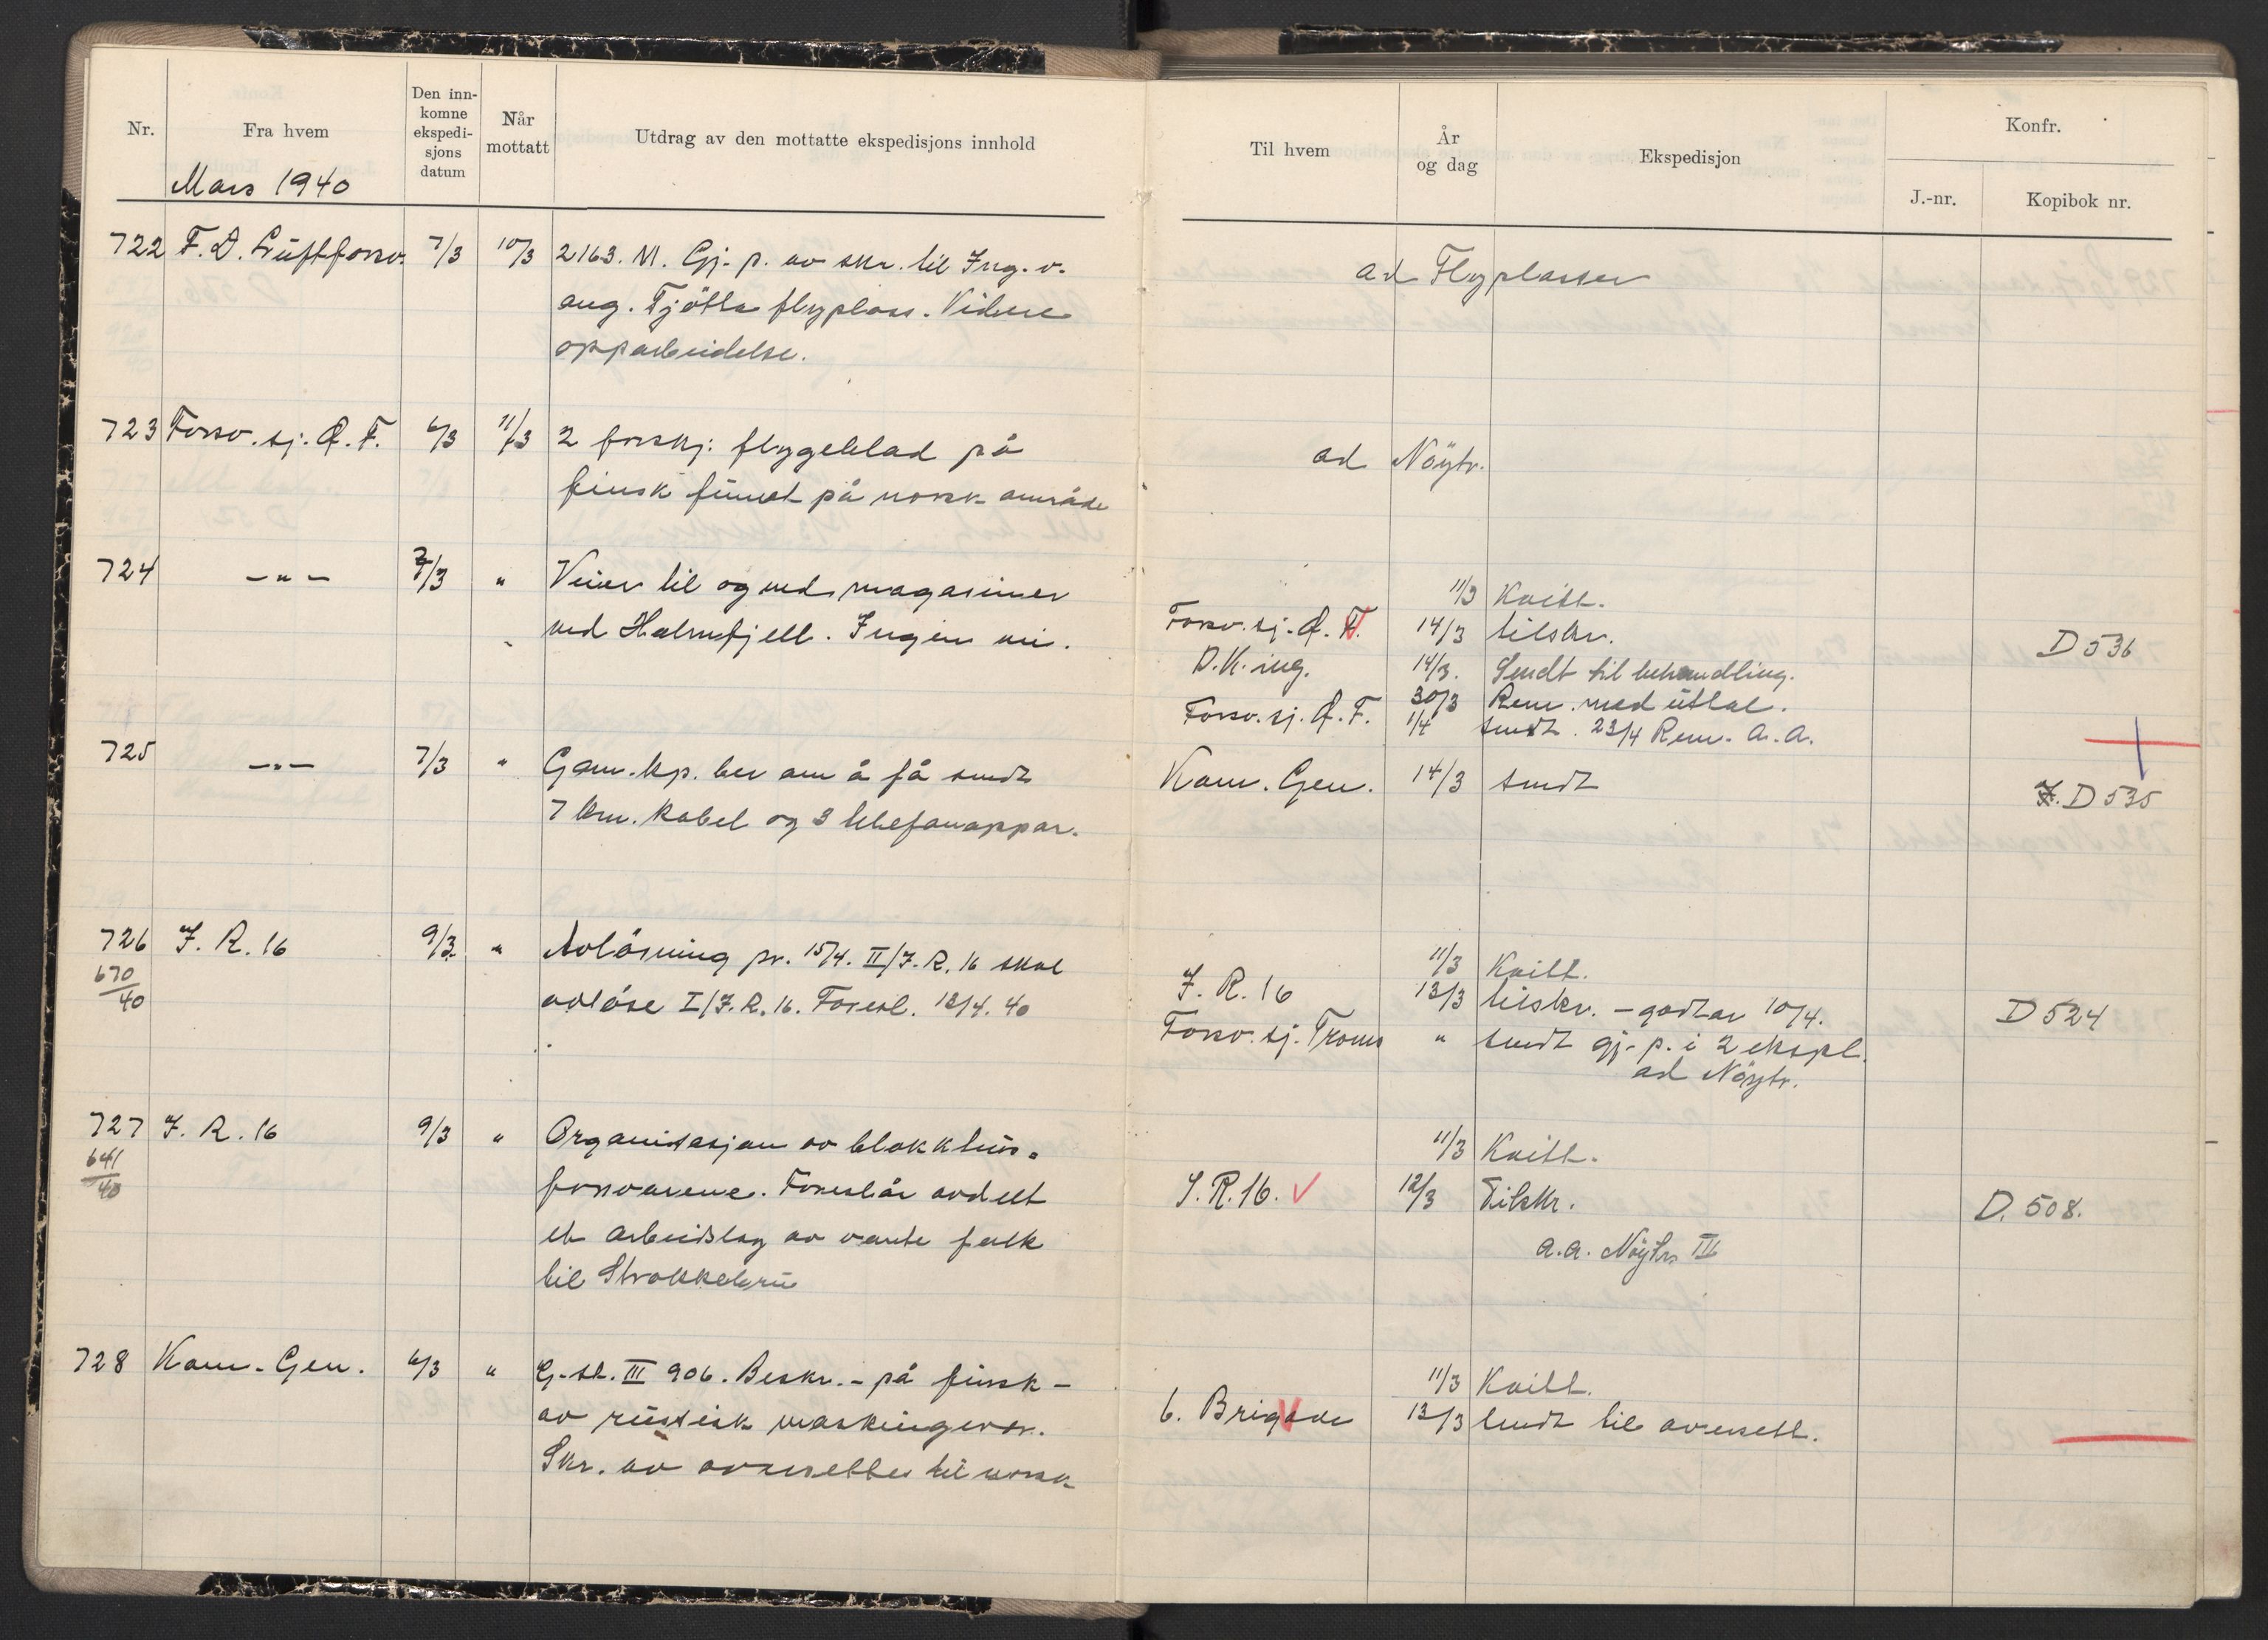 Nr.
Fra hvem
Den inn-
komne
ekspedi-
sjons
datum
Når
mottatt
Utdrag av den mottatte ekspedisjons innhold
Mars 1940
722 F. D. Luftforsv. 7/3 10/3 2163. M. Gj. p. av skr. til Ing. v.
ang. Tjötta flyplass. Videre
opparbeidelse.
723 Forsv. sj. Ø. F. 6/3 11/3 2 forskj: flygeblad på
finsk funnet på norsk område
724 – " – 7/3 " Veier til og ved magasiner
ved Holmfjell. Ingen vei.
725 – " – 7/3 " Garn. kp. ber om å få sendt
7 km. kabel og 3 telefonappar.
726 I. R. 16 9/3 " Avlösning pr. 15/4. II/I. R. 16 skal
670
40
avlöse I/I. R. 16. Foresl. 12/4. 40
727 I. R. 16 9/3 " Organisasjon av blokkhus-
641
40
forsvarene. Foreslår avdelt
et arbeidslag av vante folk
til Strokkebru
728 Kom. Gen. 6/3 " G. st. III 906. Beskr. – på finsk –
av russisk maskingevær.
Skr. av oversettes til norsk
Til hvem
År
og dag
Ekspedisjon
Konfr.
J.-nr.
Kopibok nr.
ad Flyplasser
ad Nöytr.
11/3 Kvitt.
Forsv. sj. Ø. F. 14/3 tilskr. D 536
D. K. ing. 14/3. Sendt til behandling.
Forsv. sj. Ø. F. 30/3 Rem. med uttal.
1/4 sendt. 23/4 Rem. a. a.
Kom. Gen. 14/3 sendt D 535
11/3 Kvitt.
I. R. 16 13/3 tilskr. – godtar 10/4. D 524
Forsv. sj. Troms " sendt gj. p. i 2 ekspl.
ad Nöytr.
11/3 Kvitt.
I. R. 16. 12/3 Tilskr. D. 508.
a. a. Nöytr. III
11/3 Kvitt.
6. Brigade 13/3 Sendt til oversett.